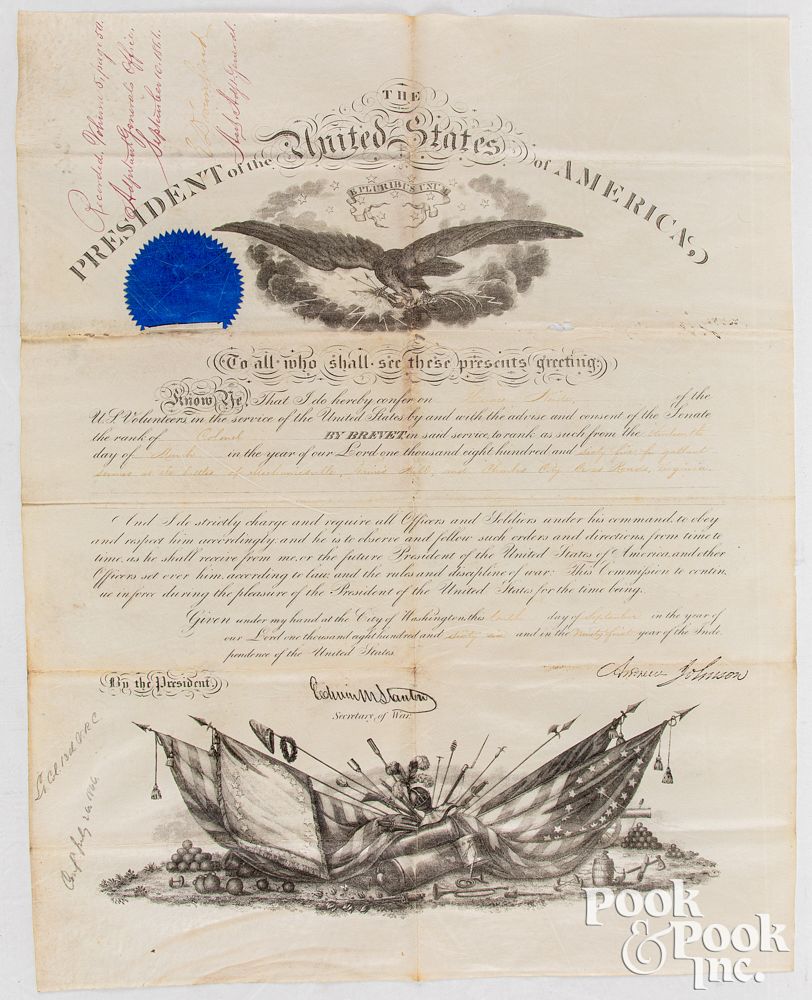 Recorded, Volume 5, page 50.
Adjutant General's Office,
September 10, 1866.
Asst. Adjt. General.
THE
PRESIDENT of the United States of AMERICA,
E PLURIBUS UNUM
To all who shall see these presents greeting:
Know Ye, That I do hereby confer on of the
U.S. Volunteers in the service of the United States by and with the advise and consent of the Senate
the rank of Colonel BY BREVET, in said service, to rank as such from the thirteenth
day of March in the year of our Lord one thousand eight hundred and sixty five, for gallant
services at the battles of Mechanicsville, Gaines' Mill, and Charles City Cross Roads, Virginia.
And I do strictly charge and require all Officers and Soldiers under his command, to obey
and respect him accordingly: and he is to observe and follow such orders and directions, from time to
time, as he shall receive from me, or the future President of the United States of America, and other
Officers set over him, according to law, and the rules and discipline of war: This Commission to contin
ue in force during the pleasure of the President of the United States, for the time being.
Given under my hand at the City of Washington, this tenth day of September in the year of
our Lord one thousand eight hundred and sixty six and in the Ninety first year of the Inde
pendence of the United States.
Andrew Johnson
By the President,
Edwin M Stanton
Secretary of War.
July 20, 1866
POOK
& POOK
Inc.